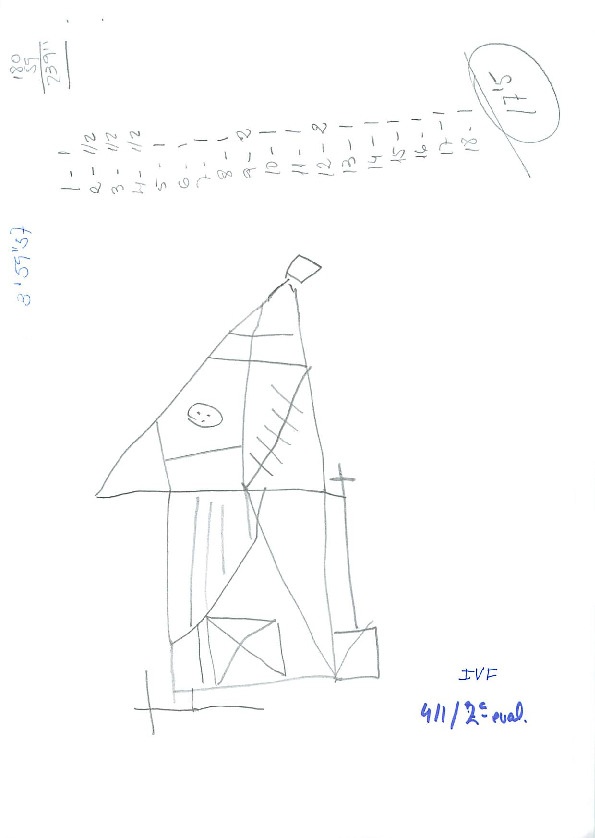 180
59
239"
1 - 1
2 - 1/2
3 - 1/2
4 - 1/2
5 - 1
6 -
7 - 1
8 - 1
9 - 2
10 - 1
11 - 1
12 - 2
13 - 1
14 - 1
15 - 1
16 - 1
17 - 1
18 - 1
17'5
3'59"57
IVF
4/1/2ª eval.